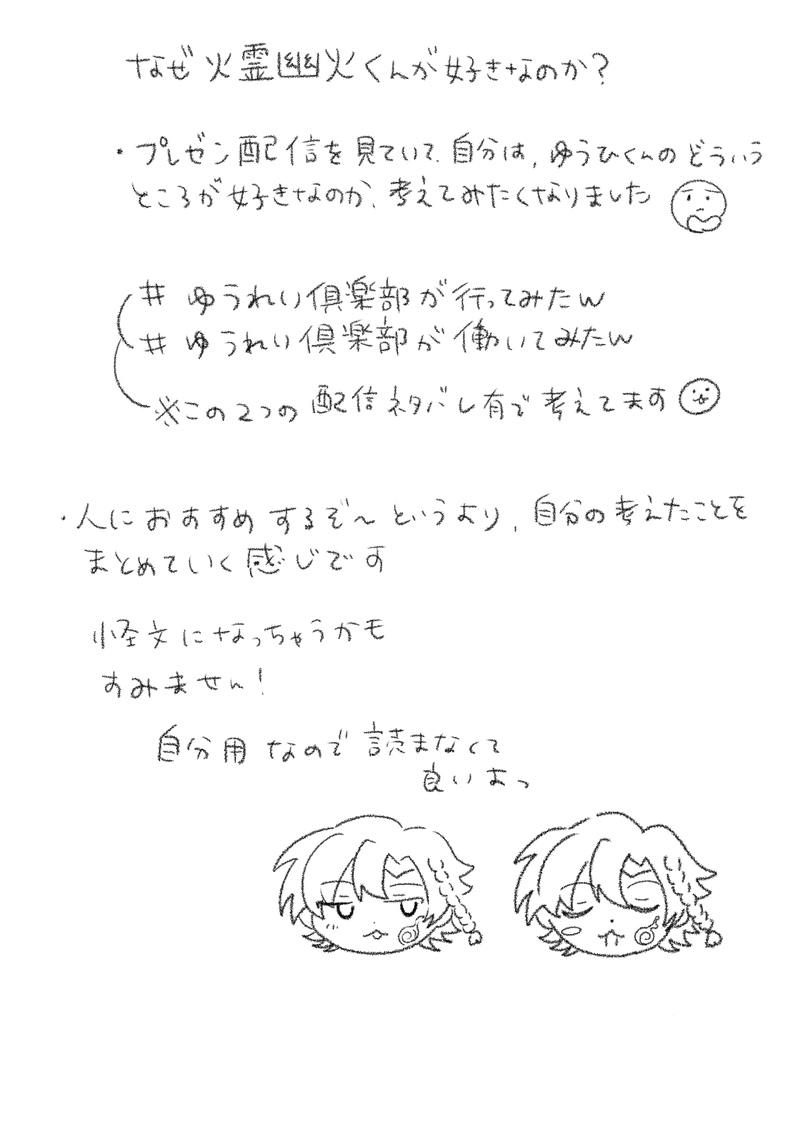 なぜ火霊幽火くんが好きなのか?
・プレゼン配信を見ていて、自分は、ゆうひくんのどういう
ところが好きなのか、考えてみたくなりました
# ゆうれい倶楽部が行ってみたw
# ゆうれい倶楽部が働いてみたw
※この2つの配信ネタバレ有で考えてます
・人におすすめするぞ〜というより、自分の考えたことを
まとめていく感じです
怪文になっちゃうかも
すみません!
自分用なので読まなくて
良いよっ